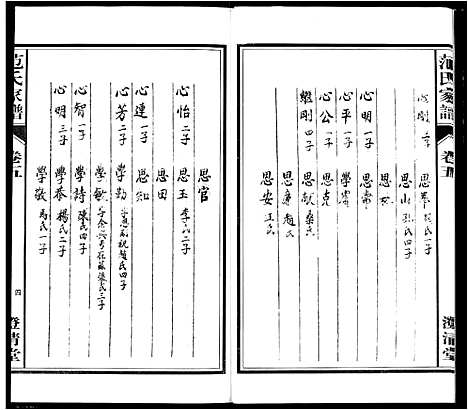 范氏家譜
卷五
澄清堂
心剛 二子
思山 孫氏四子
心明 一子
思常
心平 一子
學常
心公 一子
思克
繼剛 四子
思獻 桑氏
思廉 趙氏
思安 王氏
思官
心怡 二子
思玉 李氏二子
思田
心連 一子
思知
心芳 二子
學勤
學敏
心智 一子
學詩 陳氏四子
心明 三子
學恭 楊氏二子
學敬 馬氏一子
范氏家譜
卷五
四
澄清堂